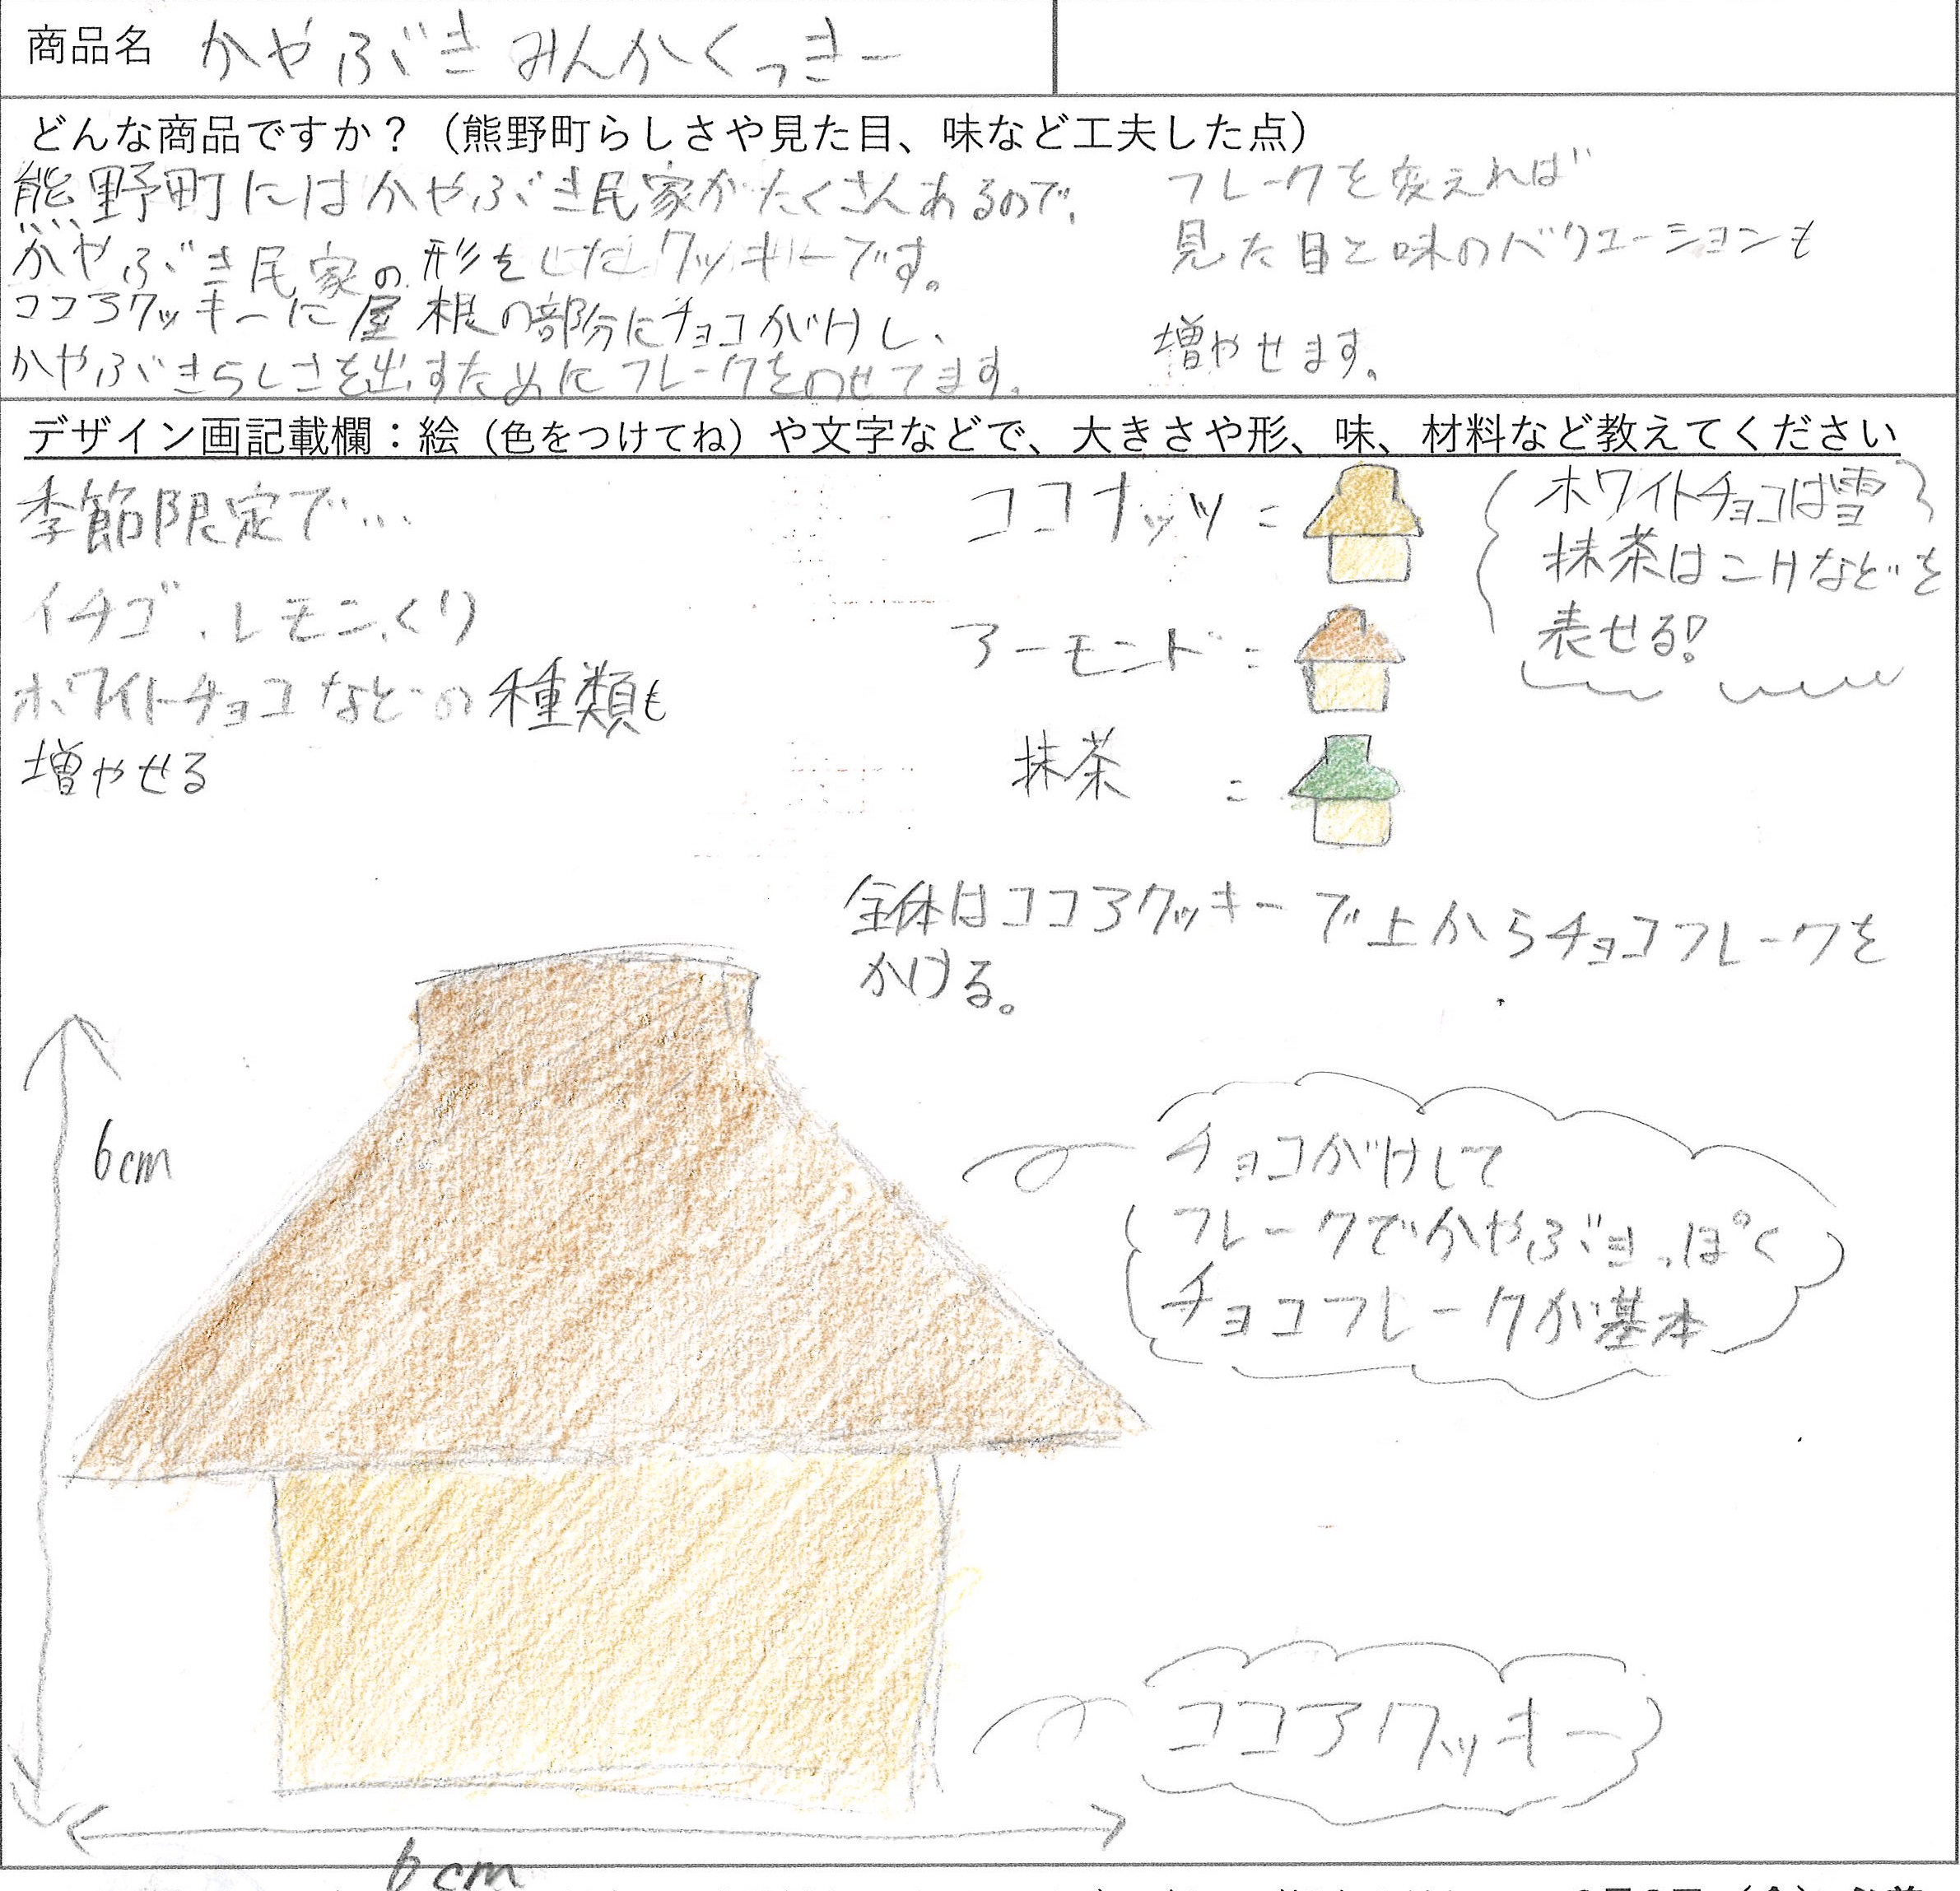 商品名 かやぶきみんかくっきー
どんな商品ですか？（熊野町らしさや見た目、味など工夫した点）
熊野町にはかやぶき民家がたくさんあるので、
かやぶき民家の形をしたクッキーです。
ココアクッキーに屋根の部分にチョコがけし、
かやぶきらしさを出すためにフレークをのせてます。
フレークを変えれば
見た目と味のバリエーションも
増やせます。
デザイン画記載欄：絵（色をつけてね）や文字などで、大きさや形、味、材料など教えてください
季節限定で…
イチゴ、レモン、くり
ホワイトチョコなどの種類も
増やせる
ココナッツ =
アーモンド =
抹茶 =
ホワイトチョコは雪
抹茶はコケなどを
表せる!
全体はココアクッキーで上からチョコフレークを
かける。
6cm
チョコがけして
フレークでかやぶきっぽく
チョコフレークが基本
ココアクッキー
6cm